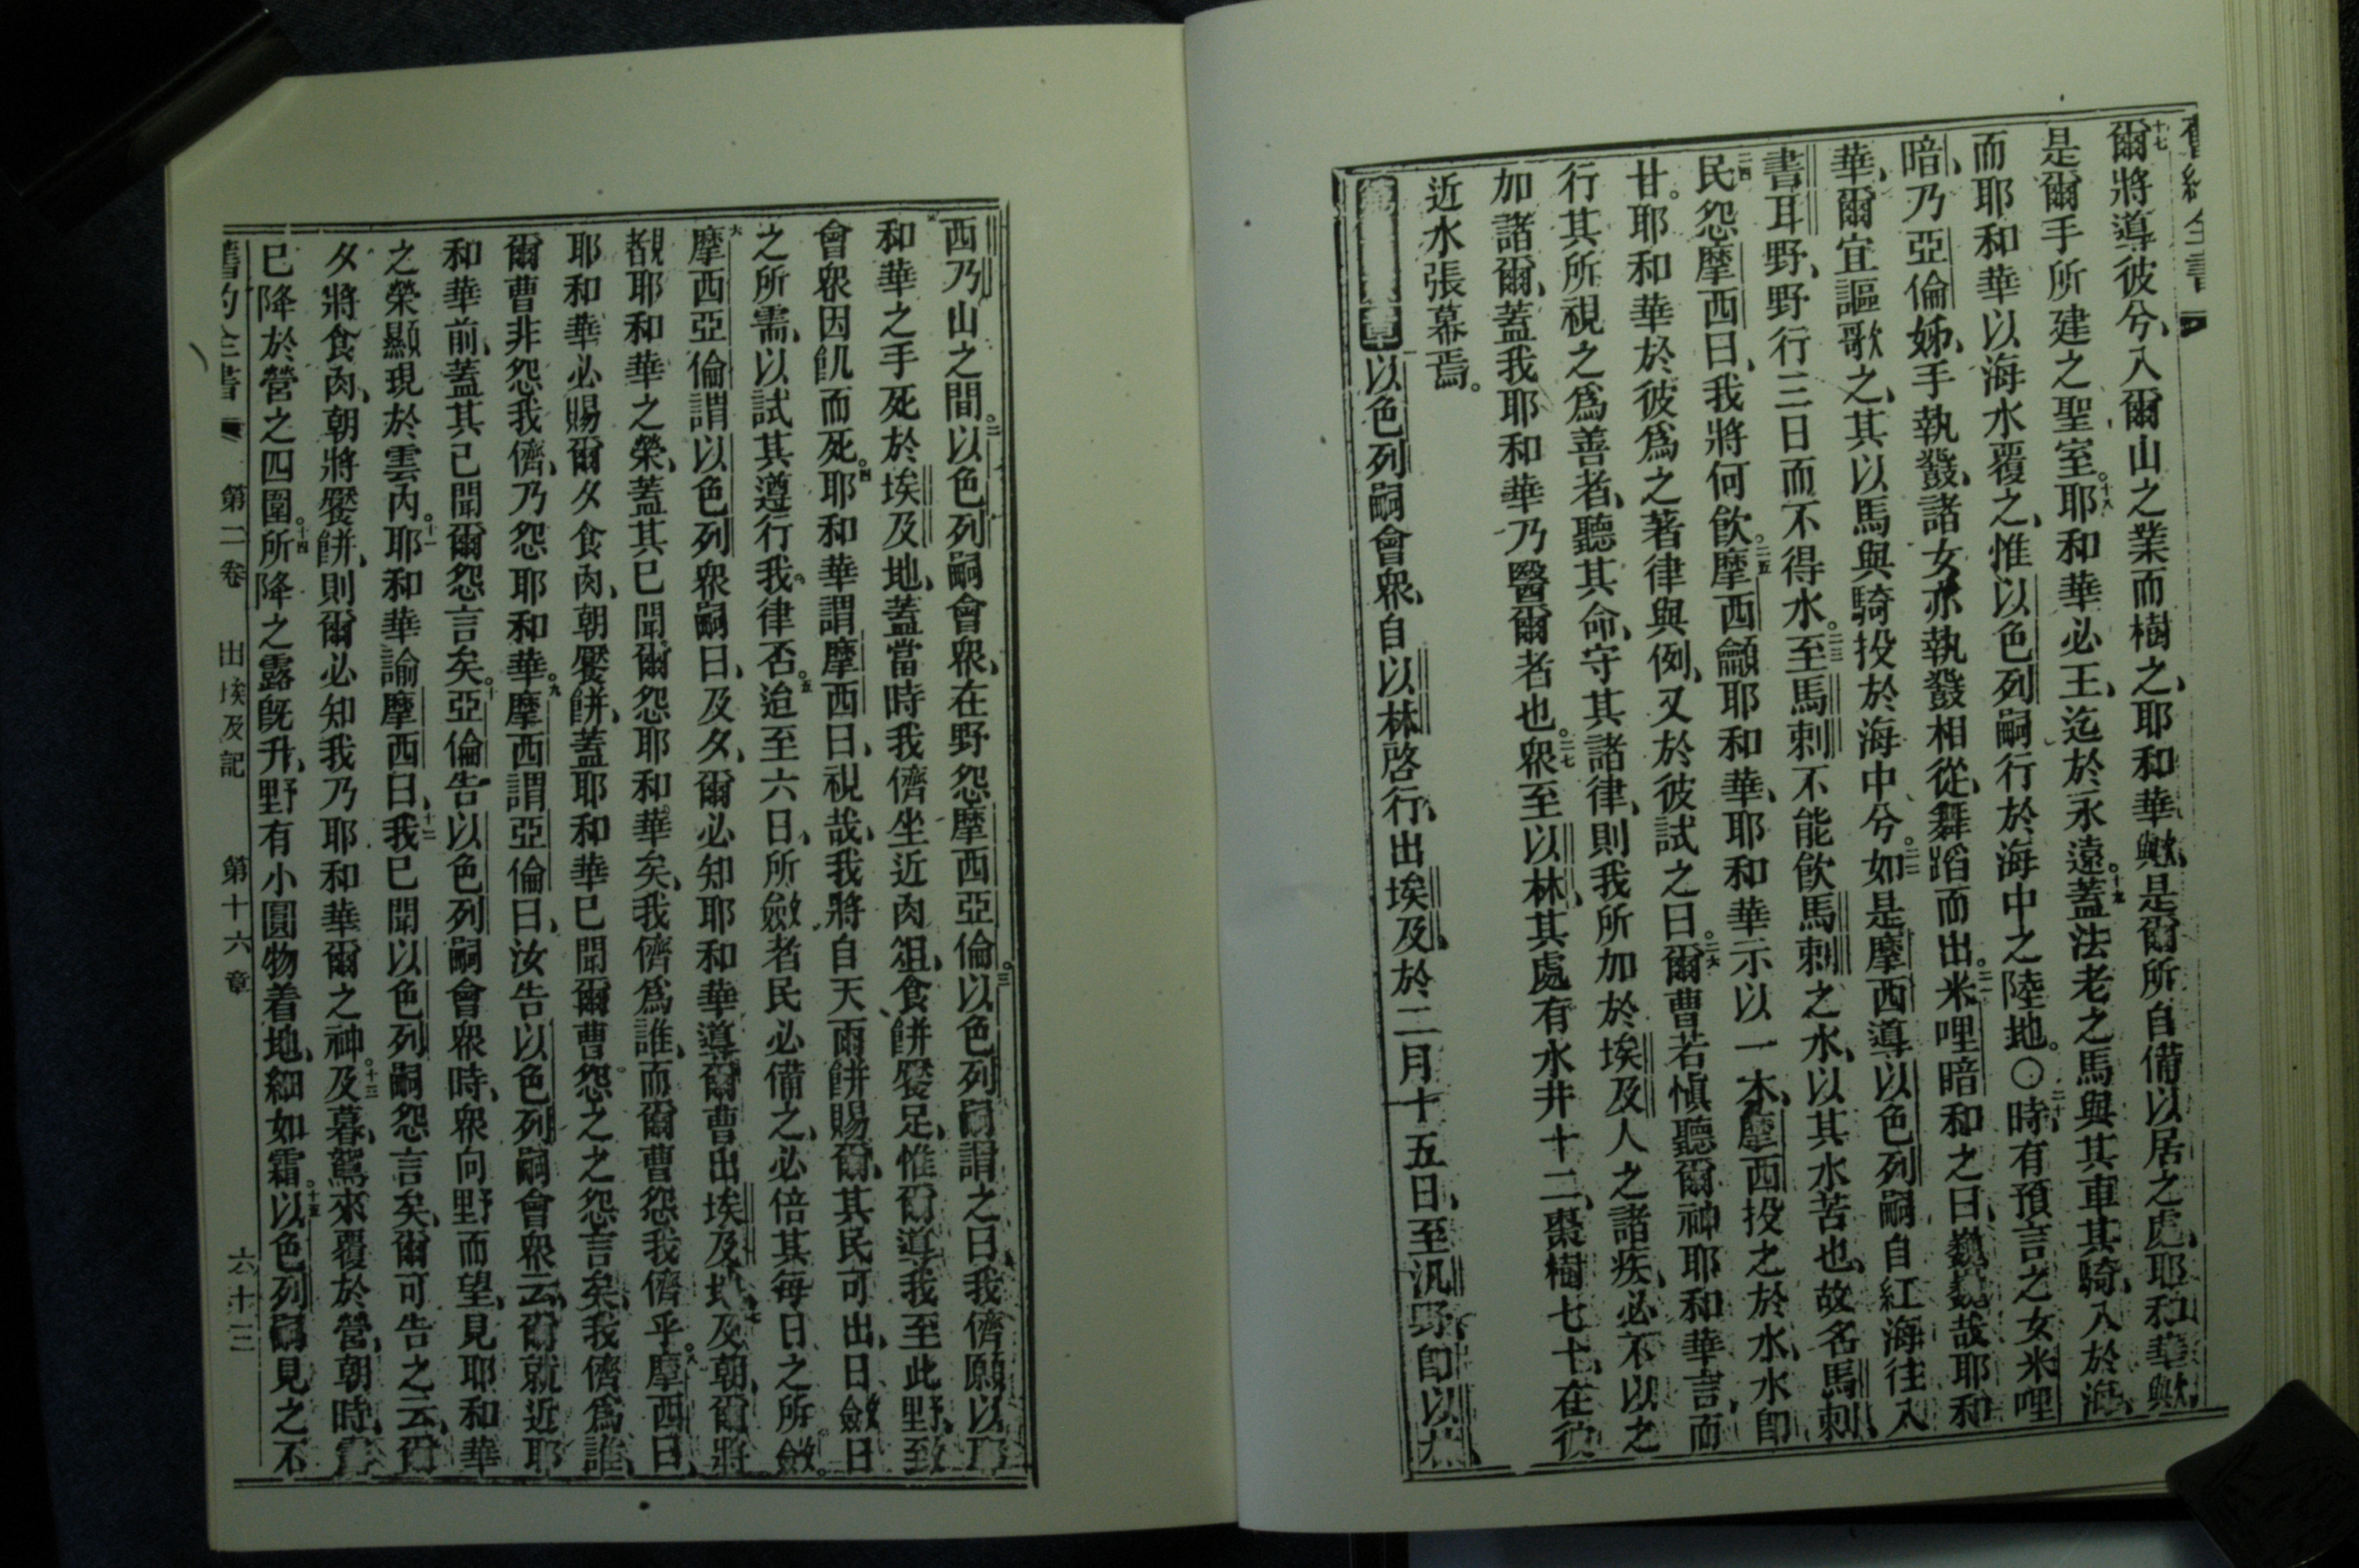 舊約全書
十七爾將導彼兮、入爾山之業而樹之、耶和華歟、是爾所自備以居之處、耶和華歟、
是爾手所建之聖室。十八耶和華必王、迄於永遠。十九蓋法老之馬與其車其騎、入於海、
而耶和華以海水覆之、惟以色列嗣行於海中之陸地。〇二十時有預言之女米哩
暗、乃亞倫姊、手執鼗、諸女亦執鼗相從、舞蹈而出。二一米哩暗和之曰、巍巍哉耶和
華、爾宜謳歌之、其以馬與騎投於海中兮。二二如是摩西導以色列嗣自紅海往入
書耳野、野行三日而不得水。二三至馬剌不能飲馬剌之水、以其水苦也、故名馬剌、
二四民怨摩西曰、我將何飲。二五摩西龥耶和華、耶和華示以一木、摩西投之於水、水即
甘。耶和華於彼爲之著律與例、又於彼試之曰。二六爾曹若慎聽爾神耶和華言、而
行其所視之爲善者、聽其命、守其諸律、則我所加於埃及人之諸疾、必不以之
加諸爾、蓋我耶和華乃醫爾者也。二七衆至以林、其處有水井十二、棗樹七十、在彼
近水張幕焉。
章以色列嗣會衆、自以林啓行、出埃及、於二月十五日、至汛野、即以林
西乃山之間。二以色列嗣會衆、在野怨摩西亞倫。三以色列嗣謂之曰、我儕願以耶
和華之手死於埃及地、蓋當時我儕坐近肉俎、食餅饜足、惟爾導我至此野、致
會衆因飢而死。四耶和華謂摩西曰、視哉、我將自天雨餅賜爾、其民可出、日斂日
之所需、以試其遵行我律否。五迨至六日、所斂者民必備之、必倍其每日之所斂。
六摩西亞倫謂以色列衆嗣曰、及夕、爾必知耶和華導爾曹出埃及地、七及朝、爾將
覩耶和華之榮、蓋其已聞爾怨耶和華矣、我儕爲誰、而爾曹怨我儕乎。八摩西曰、
耶和華必賜爾夕食肉、朝饜餅、蓋耶和華已聞爾曹怨之之怨言矣、我儕爲誰、
爾曹非怨我儕、乃怨耶和華。九摩西謂亞倫曰、汝告以色列嗣會衆云、爾就近耶
和華前、蓋其已聞爾怨言矣。十亞倫告以色列嗣會衆時、衆向野而望、見耶和華
之榮顯現於雲內。十一耶和華諭摩西曰、十二我已聞以色列嗣怨言矣、爾可告之云、爾
夕將食肉、朝將饜餅、則爾必知我乃耶和華爾之神。十三及暮、鴽來覆於營、朝時、露
已降於營之四圍。十四所降之露旣升、野有小圓物着地、細如霜。十五以色列嗣見之不
舊約全書 第二卷 出埃及記 第十六章 六十三